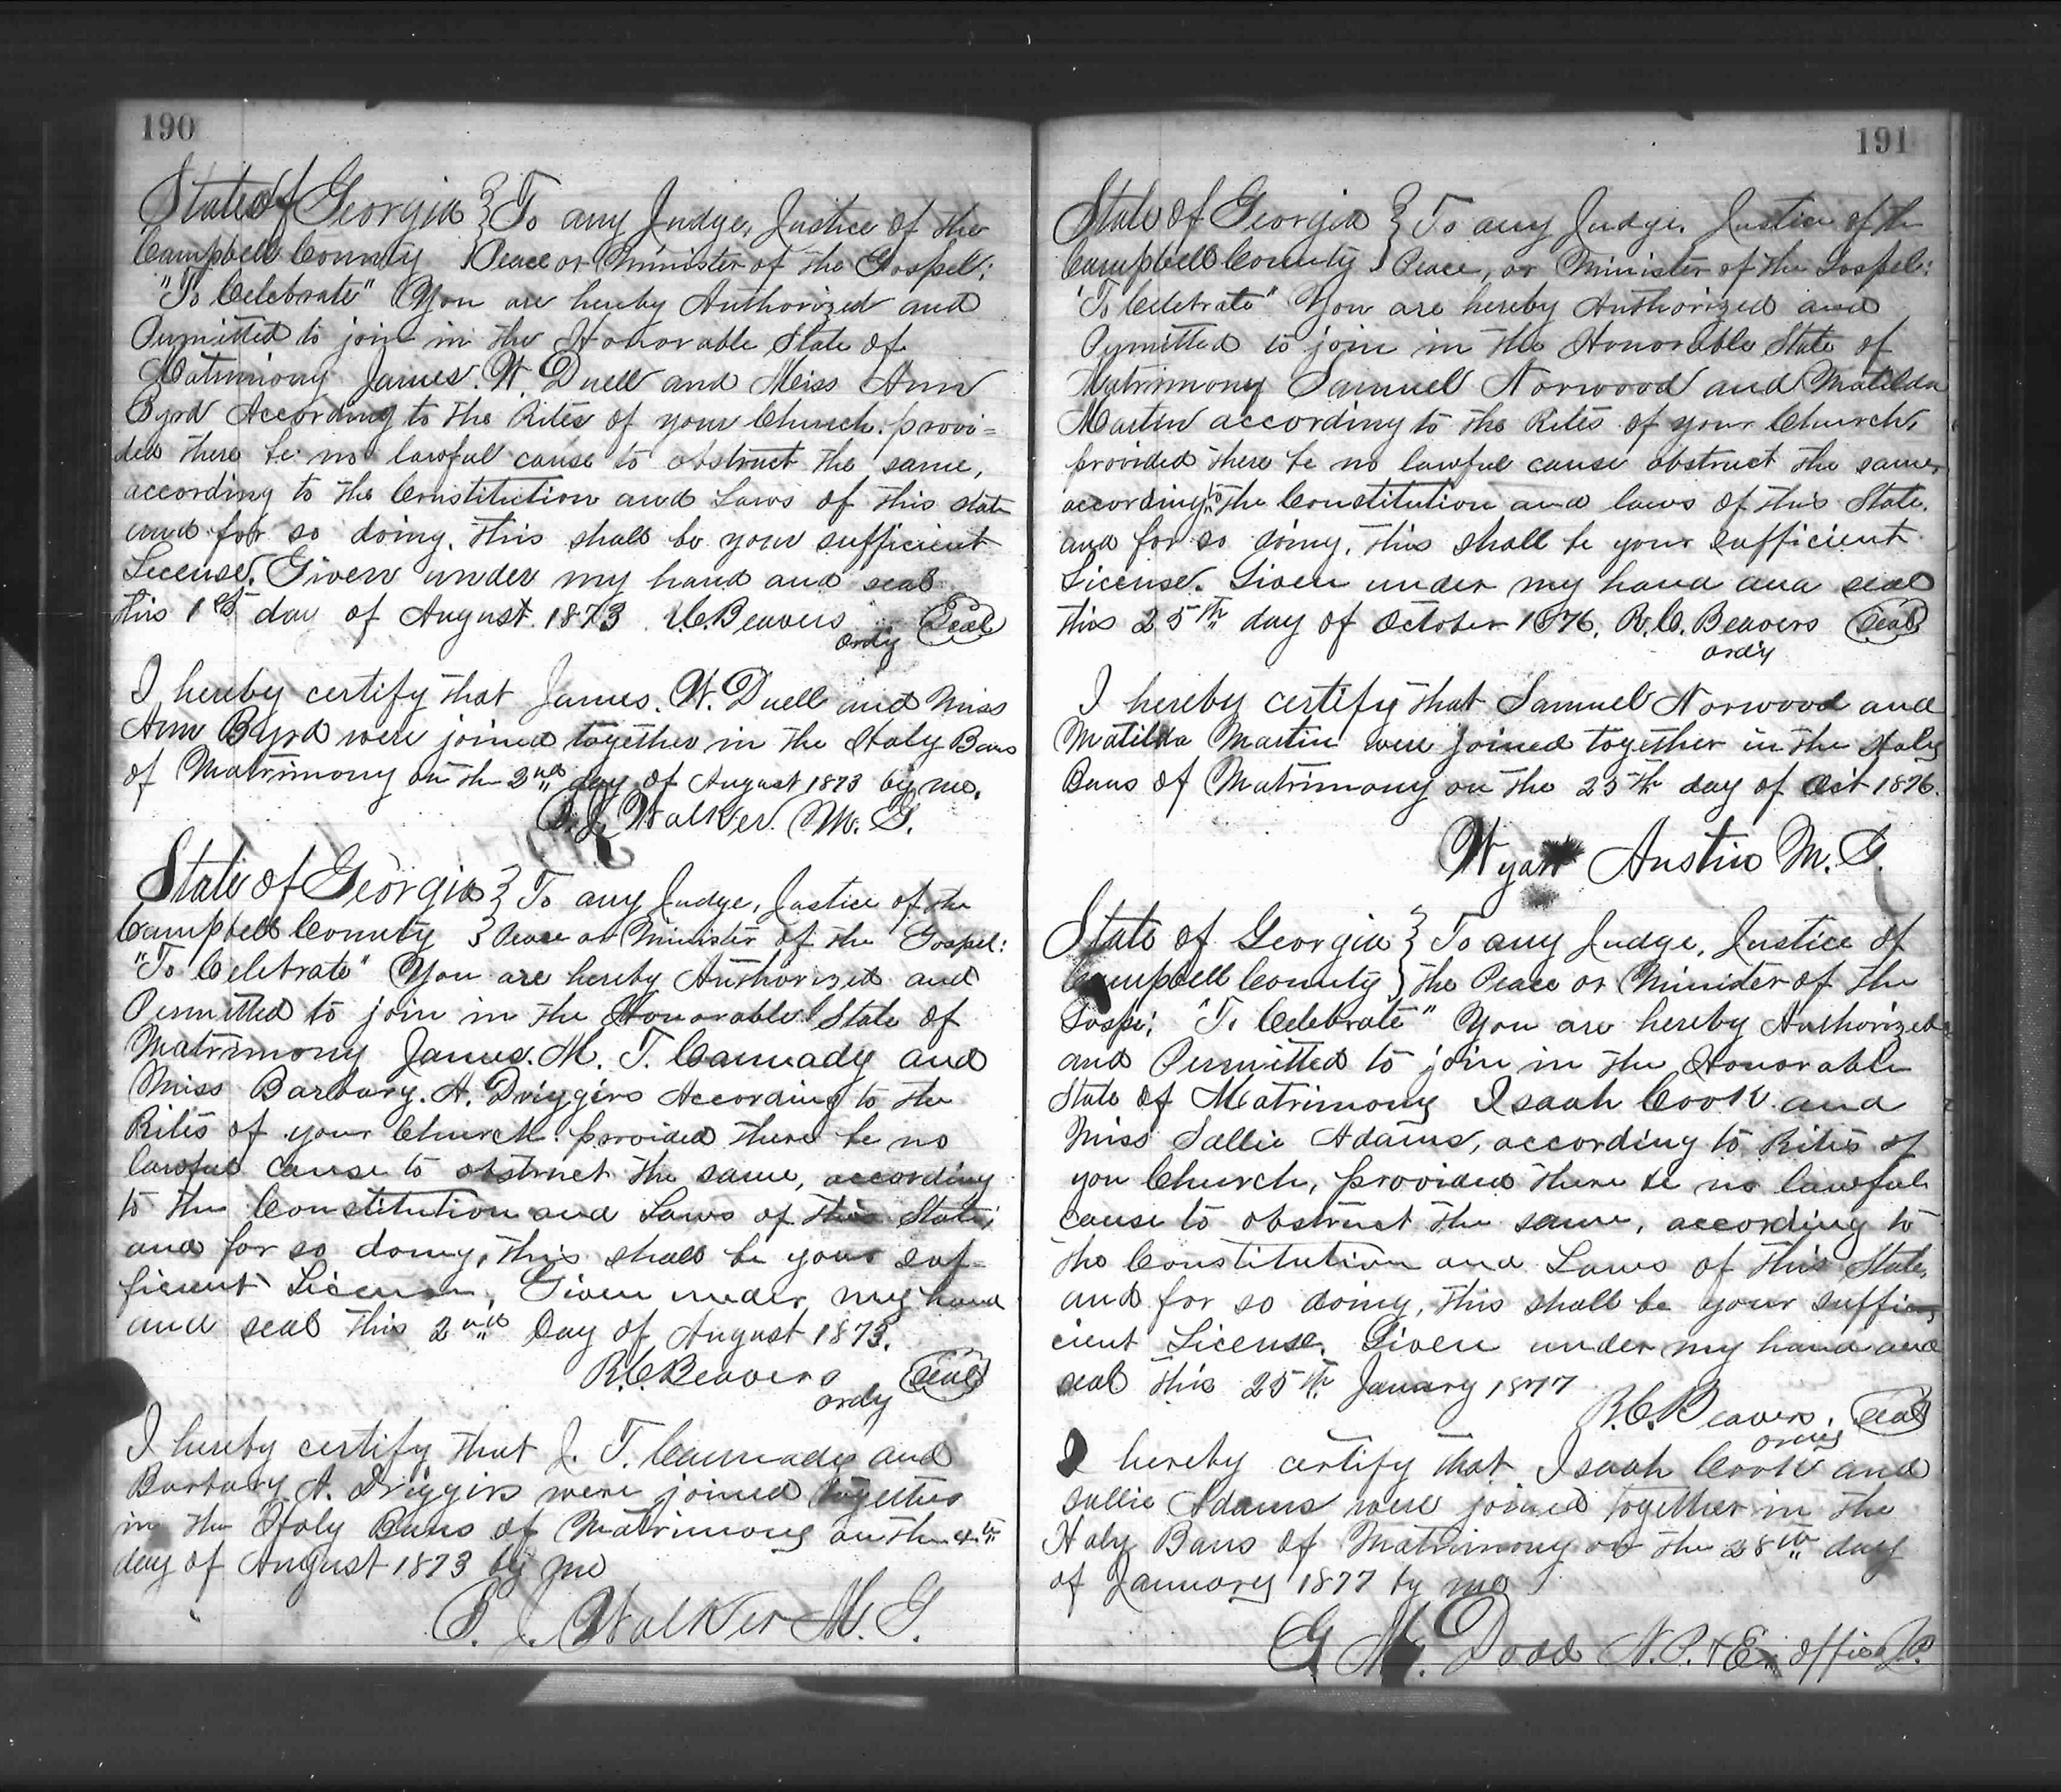 190
State of Georgia } To any Judge, Justice of the
Campbell County } Peace or Minister of the Gospel:
"To Celebrate" You are hereby Authorized and
Permitted to join in the Honorable State of
Matrimony James. W. Duell and Miss Ann
Byrd According to the Rites of your Church: provi=
ded there be no lawful cause to obstruct the same,
according to the Constitution and Laws of this state
and for so doing, this shall be your sufficient
License. Given under my hand and seal
this 1st day of August 1873 R.C. Beavers Seal
ordy
I hereby certify that James. W. Duell and Miss
Ann Byrd were joined together in the Holy Bans
of Matrimony on the 2nd day of August 1873 by me.
J. Walker. M. G.
State of Georgia } To any Judge, Justice of the
Campbell County } Peace or Minister of the Gospel:
"To Celebrate" You are hereby Authorized and
Permitted to join in the Honorable State of
Matrimony James. M. T. Cannady and
Miss Barbary. A. Driggers According to the
Rites of your Church: provided there be no
lawful cause to obstruct the same, according
to the Constitution and Laws of this State;
and for so doing, this shall be your suf-
ficient License, Given under my hand
and seal this 2nd Day of August 1873.
R.C. Beavers Seal
ordy
I hereby certify that J. T. Cannady and
Barbary A. Driggers were joined together
in the Holy Bans of Matrimony on the 4th
day of August 1873 by me
J. Walker M. G.
191
State of Georgia } To any Judge, Justice of the
Campbell County } Peace, or Minister of the Gospel:
"To Celebrate" You are hereby Authorized and
Permitted to join in the Honorable State of
Matrimony Samuel Norwood and Matilda
Martin according to the Rites of your Church,
provided there be no lawful cause obstruct the same,
according to the Constitution and laws of this State,
and for so doing, this shall be your sufficient
License. Given under my hand and seal
this 25th day of October 1876. R.C. Beavers Seal
ordy
I hereby certify that Samuel Norwood and
Matilda Martin were joined together in the Holy
Bans of Matrimony on the 25th day of Oct 1876.
Wyatt Austin M. G.
State of Georgia } To any Judge, Justice of
Campbell County } the Peace or Minister of the
Gospe: "To Celebrate" You are hereby Authorized
and Permitted to join in the Honorable
State of Matrimony Isaah Cook and
Miss Sallie Adams, according to Rites of
you Church, provided there be no lawful
cause to obstruct the same, according to
the Constitution and Laws of this State,
and for so doing, this shall be your suffici-
cient License. Given under my hand and
seal this 25th January 1877
R.C. Beavers, Seal
ordy
I hereby certify that Isaah Cook and
Sallie Adams were joined together in the
Holy Bans of Matrimony on the 28th day
of January 1877 by me
G. M. Dodd N.P. & Ex officio J.P.